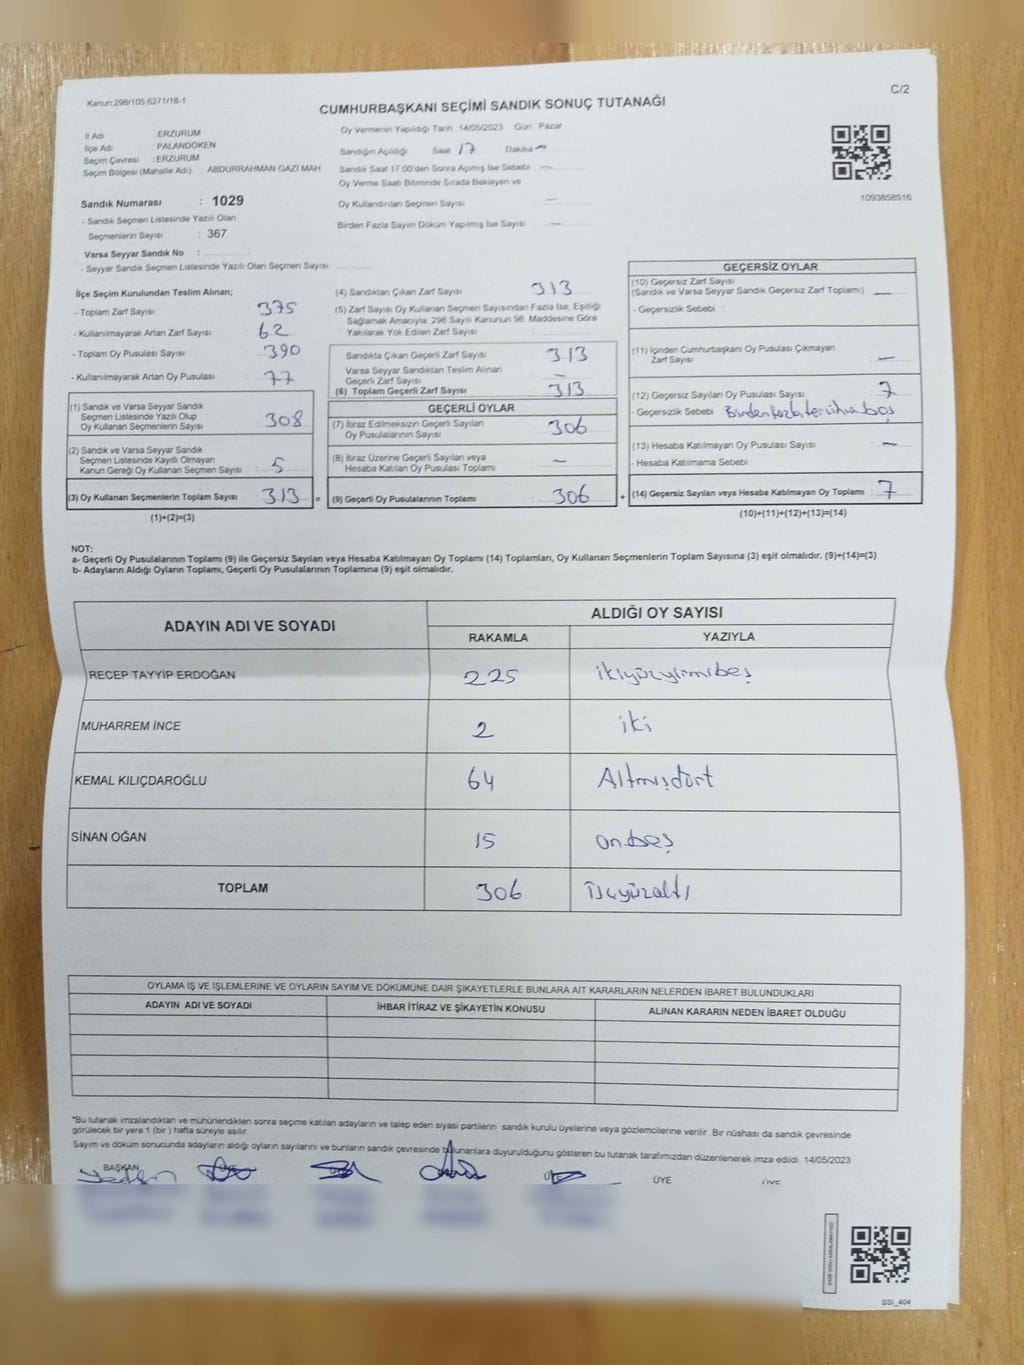 Kanun:298/105;6271/18-1
C/2
CUMHURBAŞKANI SEÇİMİ SANDIK SONUÇ TUTANAĞI
İl Adı : ERZURUM
İlçe Adı : PALANDÖKEN
Seçim Çevresi : ERZURUM
Seçim Bölgesi (Mahalle Adı) : ABDURRAHMAN GAZİ MAH
Sandık Numarası : 1029
- Sandık Seçmen Listesinde Yazılı Olan
Seçmenlerin Sayısı : 367
Varsa Seyyar Sandık No :
- Seyyar Sandık Seçmen Listesinde Yazılı Olan Seçmen Sayısı
Oy Vermenin Yapıldığı Tarih 14/05/2023 Gün Pazar
Sandığın Açıldığı Saat 17 Dakika —
Sandık Saat 17:00'den Sonra Açımış İse Sebebi —
Oy Verme Saati Bitiminde Sırada Bekleyen ve
Oy Kullandırılan Seçmen Sayısı —
Birden Fazla Sayım Döküm Yapılmış İse Sayısı —
1093858516
İlçe Seçim Kurulundan Teslim Alınan;
- Toplam Zarf Sayısı 375
- Kullanılmayarak Artan Zarf Sayısı 62
- Toplam Oy Pusulası Sayısı 390
- Kullanılmayarak Artan Oy Pusulası 77
(1) Sandık ve Varsa Seyyar Sandık
Seçmen Listesinde Yazılı Olup
Oy Kullanan Seçmenlerin Sayısı 308
(2) Sandık ve Varsa Seyyar Sandık
Seçmen Listesinde Kayıtlı Olmayan
Kanun Gereği Oy Kullanan Seçmen Sayısı 5
(3) Oy Kullanan Seçmenlerin Toplam Sayısı 313 =
(1)+(2)=(3)
(4) Sandıktan Çıkan Zarf Sayısı 313
(5) Zarf Sayısı Oy Kullanan Seçmen Sayısından Fazla İse, Eşitliği
Sağlamak Amacıyla; 298 Sayılı Kanunun 98. Maddesine Göre
Yakılarak Yok Edilen Zarf Sayısı
Sandıkta Çıkan Geçerli Zarf Sayısı 313
Varsa Seyyar Sandıktan Teslim Alınan
Geçerli Zarf Sayısı —
(6) Toplam Geçerli Zarf Sayısı 313
GEÇERLİ OYLAR
(7) İtiraz Edilmeksizin Geçerli Sayılan
Oy Pusulalarının Sayısı 306
(8) İtiraz Üzerine Geçerli Sayılan veya
Hesaba Katılan Oy Pusulası Toplamı —
(9) Geçerli Oy Pusulalarının Toplamı 306 +
GEÇERSİZ OYLAR
(10) Geçersiz Zarf Sayısı
(Sandık ve Varsa Seyyar Sandık Geçersiz Zarf Toplamı) —
- Geçersizlik Sebebi :
(11) İçinden Cumhurbaşkanı Oy Pusulası Çıkmayan
Zarf Sayısı —
(12) Geçersiz Sayılan Oy Pusulası Sayısı 7
- Geçersizlik Sebebi Birden fazla tercih ve boş
(13) Hesaba Katılmayan Oy Pusulası Sayısı —
- Hesaba Katılmama Sebebi
(14) Geçersiz Sayılan veya Hesaba Katılmayan Oy Toplamı : 7
(10)+(11)+(12)+(13)=(14)
NOT:
a- Geçerli Oy Pusulalarının Toplamı (9) ile Geçersiz Sayılan veya Hesaba Katılmayan Oy Toplamı (14) Toplamları, Oy Kullanan Seçmenlerin Toplam Sayısına (3) eşit olmalıdır. (9)+(14)=(3)
b- Adayların Aldığı Oyların Toplamı, Geçerli Oy Pusulalarının Toplamına (9) eşit olmalıdır.
ADAYIN ADI VE SOYADI
ALDIĞI OY SAYISI
RAKAMLA YAZIYLA
RECEP TAYYİP ERDOĞAN 225 ikiyüzyirmibeş
MUHARREM İNCE 2 iki
KEMAL KILIÇDAROĞLU 64 Altmışdört
SİNAN OĞAN 15 onbeş
TOPLAM 306 üçyüzaltı
OYLAMA İŞ VE İŞLEMLERİNE VE OYLARIN SAYIM VE DÖKÜMÜNE DAİR ŞİKAYETLERLE BUNLARA AİT KARARLARIN NELERDEN İBARET BULUNDUKLARI
ADAYIN ADI VE SOYADI İHBAR İTİRAZ VE ŞİKAYETİN KONUSU ALINAN KARARIN NEDEN İBARET OLDUĞU
*Bu tutanak imzalandıktan ve mühürlendikten sonra seçime katılan adayların ve talep eden siyasi partilerin sandık kurulu üyelerine veya gözlemcilerine verilir. Bir nüshası da sandık çevresinde
görülecek bir yere 1 (bir) hafta süreyle asılır.
Sayım ve döküm sonucunda adayların aldığı oyların sayılarını ve bunların sandık çevresinde bulunanlara duyurulduğunu gösteren bu tutanak tarafımızdan düzenlenerek imza edildi. 14/05/2023
BAŞKAN ÜYE ÜYE ÜYE
SSI_404